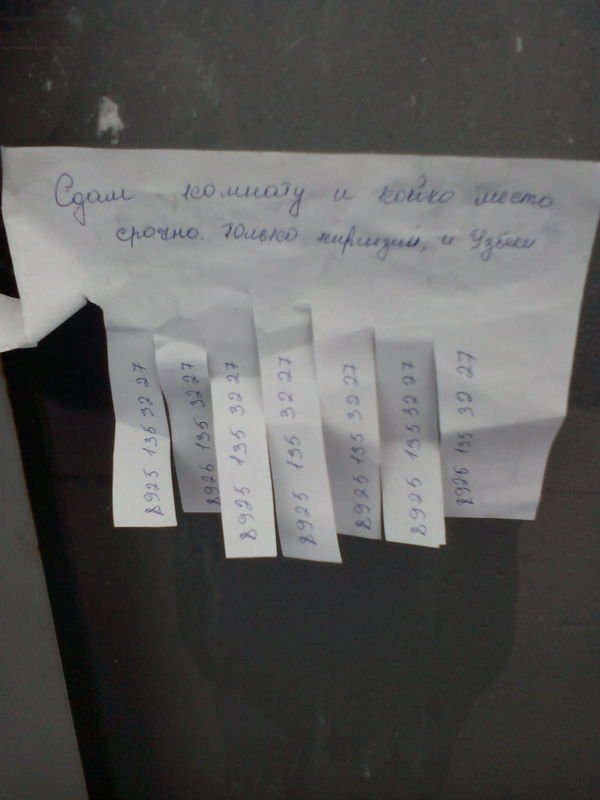 Сдам комнату и койко место
срочно. только киргизии, и Узбеки
8925 135 32 27
8925 135 32 27
8925 135 32 27
8925 135 32 27
8925 135 32 27
8925 135 32 27
8925 135 32 27